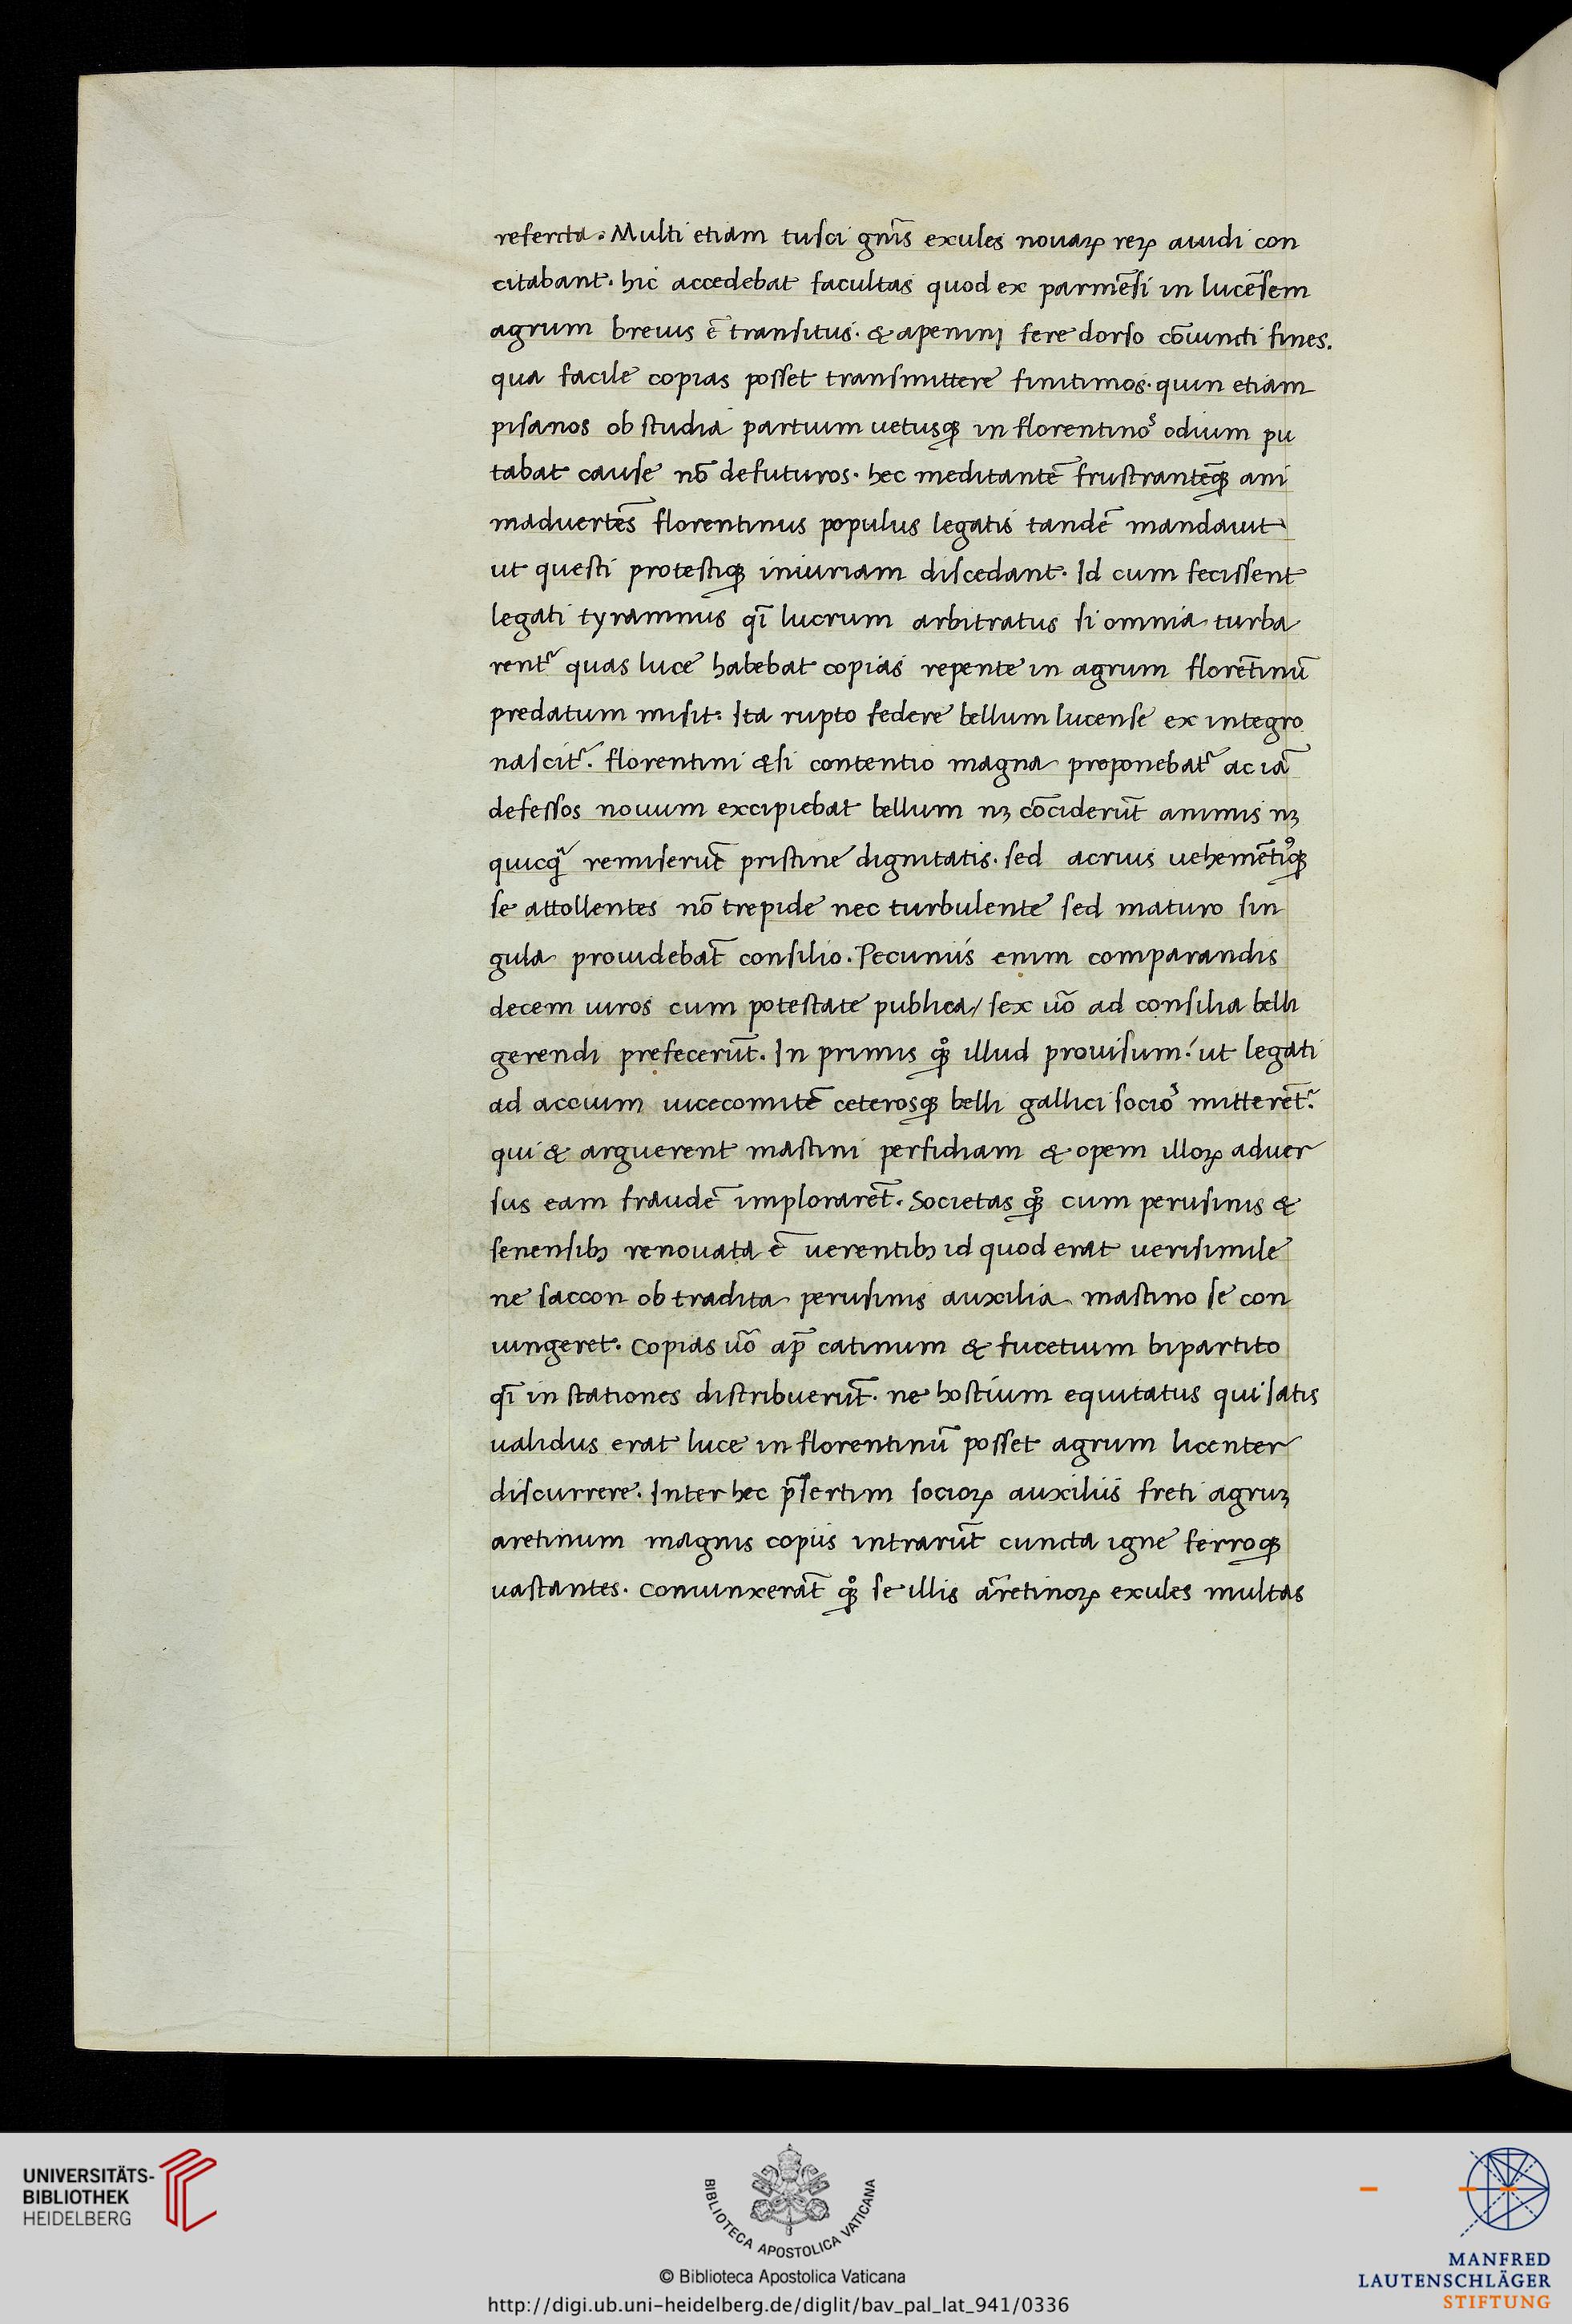 refercta. Multi etiam tusci gnīs exules nouaꝝ reꝝ auidi con
citabant. hic accedebat facultas quod ex parmēsi in lucēsem
agrum breuis ē transitus. & apenini fere dorso cōiuncti fines.
qua facile copias posset transmittere finitimos. quin etiam
pisanos ob studia partium uetusqꝫ in florentinoˢ odium pu
tabat cause nō defuturos. hec meditantē frustrantēqꝫ ani
maduertēs florentinus populus legatis tandē mandauit
ut questi protestiqꝫ iniuriam discedant. Id cum fecissent
legati tyramnus qī lucrum arbitratus si omnia turba
rentʳ quas luce habebat copias repente in agrum florētinū
predatum misit. Ita rupto federe bellum lucense ex integro
nascitʳ. florentini &si contentio magna proponebatʳ ac iā
defessos nouum excipiebat bellum nꝫ cōciderūt animis nꝫ
quicqᷓ remiserūt pristine dignitatis. sed acrius uehemētiꝰqꝫ
se attollentes nō trepide nec turbulente sed maturo sin
gula prouidebāt consilio. Pecuniis enim comparandis
decem uiros cum potestate publica/ sex uō ad consilia belli
gerendi prefecerūt. In primis qͦꝫ illud prouisum: ut legati
ad accium uicecomitē ceterosqꝫ belli gallici socioˢ mitterētʳ.
qui & arguerent mastini perfidiam & opem illoꝝ aduer
sus eam fraudē implorarēt. Societas qͦꝫ cum perusinis &
senensibꝫ renouata ē uerentibꝫ id quod erat uerisimile
ne saccon ob tradita perusinis auxilia mastino se con
iungeret. Copias uō ap̄ catinum & fucetium bipartito
qī in stationes distribuerūt. ne hostium equitatus qui satis
ualidus erat luce in florentinū posset agrum licenter
discurrere. Inter hec p̄sertim socioꝝ auxiliis freti agruꝫ
aretinum magnis copiis intrarūt cuncta igne ferroqꝫ
uastantes. Coniunxerāt qͦꝫ se illis arretinoꝝ exules multas
UNIVERSITÄTS-
BIBLIOTHEK
HEIDELBERG
BIBLIOTECA APOSTOLICA VATICANA
© Biblioteca Apostolica Vaticana
http://digi.ub.uni-heidelberg.de/diglit/bav_pal_lat_941/0336
MANFRED
LAUTENSCHLÄGER
STIFTUNG